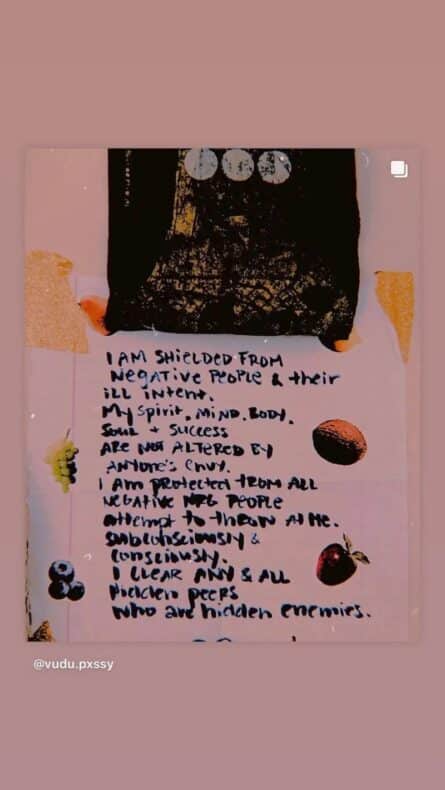 I AM SHIELDED FROM
Negative People & their
ill intent.
My spirit, MIND, BODY,
Soul + Success
ARE NOT ALTERED BY
Anyone's envy.
I Am protected from ALL
Negative NRG PEOPLE
attempt to throw AT ME.
Subconsciously &
consciously.
I CLEAR ANY & ALL
Hidden peers
who are hidden enemies.
@vudu.pxssy